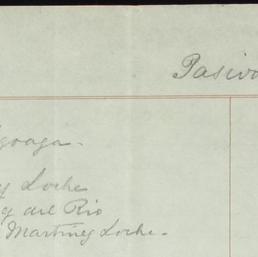 Pasivo
goaga.
y Loche
y del Rio
Martínez Loche.